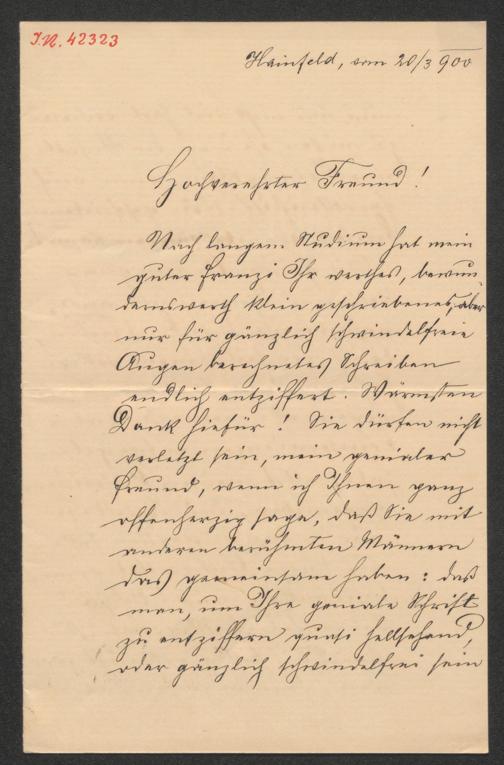 I.N. 42323
Hainfeld, vom 20/3 900
Hochverehrter Freund!
Nach langem Studium hat mein
guter Franzi Ihr werthes, bewun-
dernswerth klein geschriebenes, aber
nur für gänzlich schwindelfreie
Augen berechnetes Schreiben
endlich entziffert. Wärmsten
Dank hiefür! Sie dürfen nicht
verletzt sein, mein genialer
Freund, wenn ich Ihnen ganz
offenherzig sage, daß Sie mit
anderen berühmten Männern
das gemeinsam haben: daß
man, um Ihre geniale Schrift
zu entziffern quasi hellsehend,
oder gänzlich schwindelfrei sein